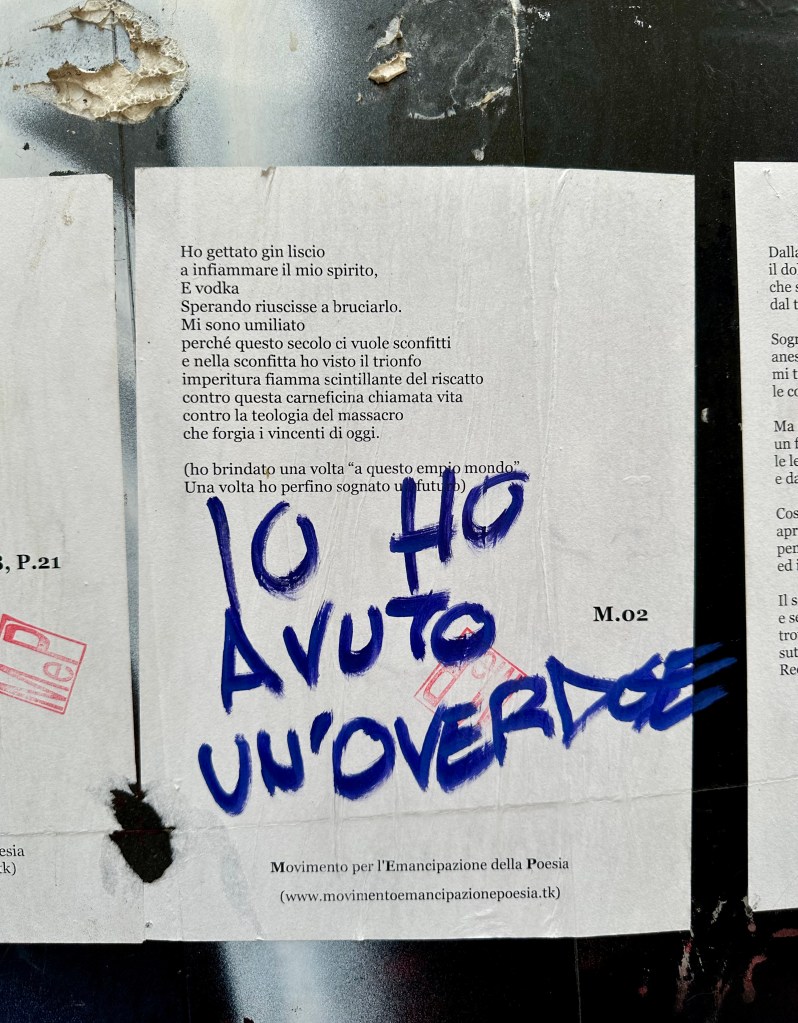 Ho gettato gin liscio
a infiammare il mio spirito,
E vodka
Sperando riuscisse a bruciarlo.
Mi sono umiliato
perché questo secolo ci vuole sconfitti
e nella sconfitta ho visto il trionfo
imperitura fiamma scintillante del riscatto
contro questa carneficina chiamata vita
contro la teologia del massacro
che forgia i vincenti di oggi.
(ho brindato una volta “a questo empio mondo”
Una volta ho perfino sognato un futuro)
IO HO
AVUTO
UN'OVERDOSE
M.02
Movimento per l'Emancipazione della Poesia
(www.movimentoemancipazionepoesia.tk)
P.21
MeP
esia
tk)
Dalla
il do
che s
dal t
Sogn
anes
mi t
le co
Ma
un f
le le
e da
Cos
apr
per
ed i
Il s
e se
tro
sut
Rec